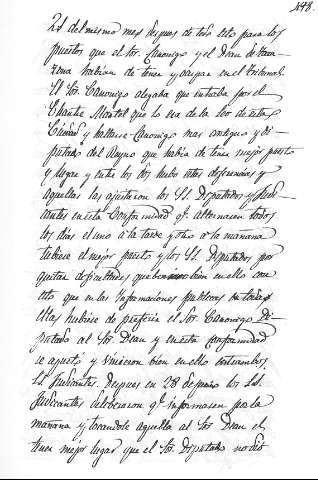 148.
21 del mismo mes despues de todo esto para los
puestos que el Sor. Canonigo y el Dean de Tara-
zona habian de tener y ocupar en el tribunal.
El Sor. Canonigo alegaba que entraba por el
Chantre Martel que lo era de la Seo de esta
Ciudad y hallarse Canonigo mas antiguo y Di-
putado del Reyno que habia de tener mejor puesto
y lugar y entre los dos hubo estas diferencias y
aquellas las ajustaron los SS. Diputados y Judi-
cantes en esta Conformidad qe. alternasen todos
los dias el uno a la tarde y otro a la manana
tubiese el mejor puesto y los SS. Diputados por
quitar dificultades que venian bien en ello con
esto que en las Informaciones publicas en todas
ellas hubiese de preferir el Sor. Canonigo Di-
putado al Sor. Dean y en esta conformidad
se ajusto y vinieron bien en ello entrambos.
SS. Judicantes. Despues en 28 de Junio los SS.
Judicantes deliberaron qe. informasen por la
manana y tocandole aquella al Sor. Dean el
tener mejor lugar que el Sor. Diputado no dio